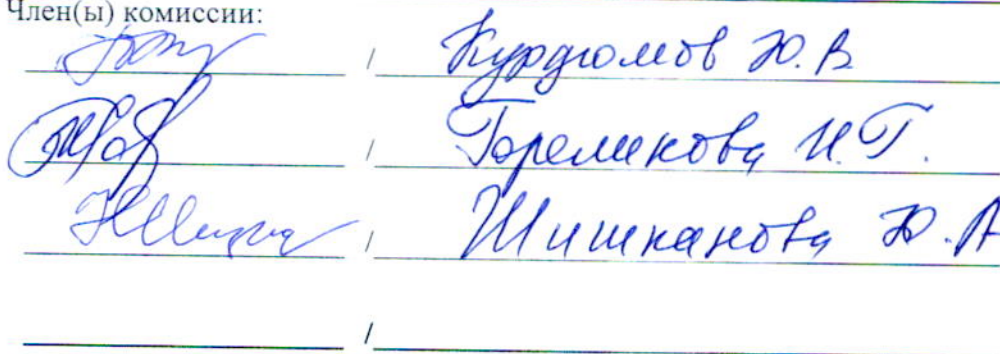 Член(ы) комиссии:
/ Курдюмов Ю.В
/ Горемыкова И.Г.
/ Шишканова Ю.А
/